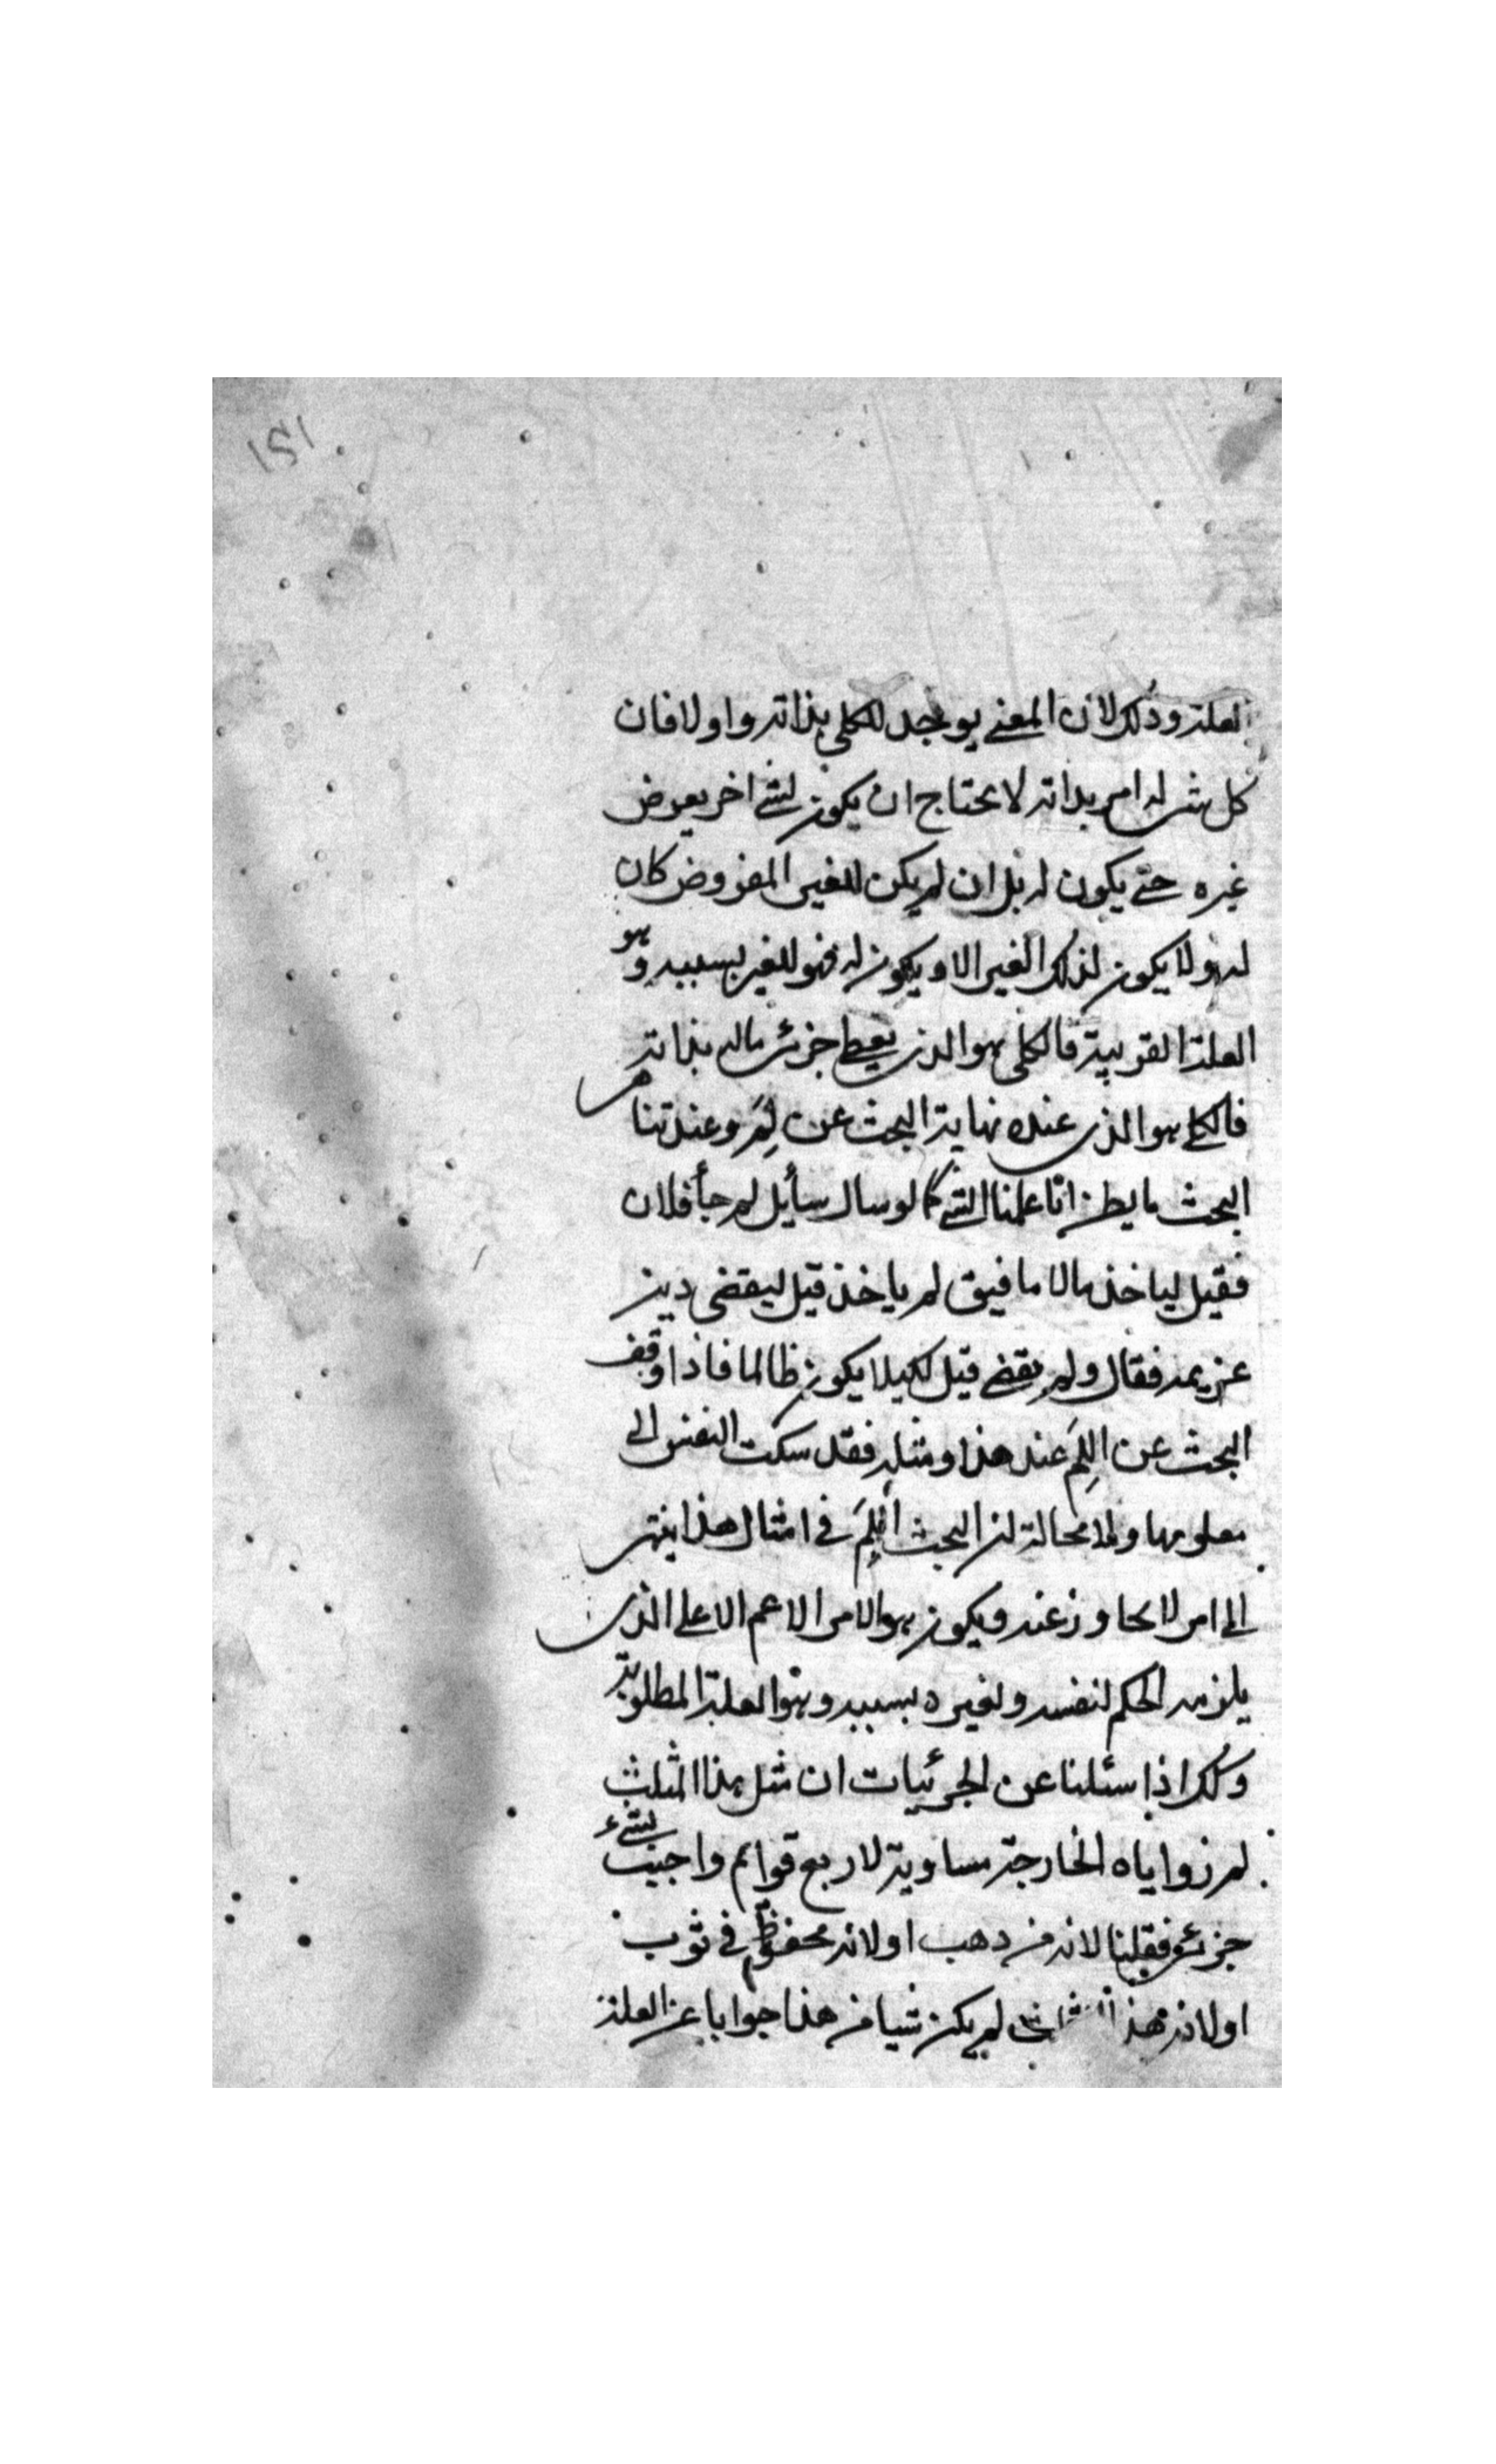 ١٥١
العلة وذلك لان المعنى يوجد للكلى بذاته واولا فان
كل شى له امر بذاته لا يحتاج ان يكون لشئ اخر يعرض
غيره حتى يكون له بل ان لم يكن للغير المفروض كان
له ولا يكون لذلك الغير الا ويكون له فهو للغير بسببه وهو
العلة القريبة فالكلى هو الذى يعطى جزئى ماله بذاته
فالكلى هو الذى عنده نهاية البحث عن لِمَ وعند تناهى
البحث ما يظن انّا علمنا الشئ كما لو سال سأيل لم جأ فلان
فقيل لياخذ مالا ما فيق لم ياخذ قيل ليقضى دين
غريمه فقال ولم يقضى قيل لكيلا يكون ظالما فاذا وقف
البحث عن اللِمَ عند هذا ومثله فقد سكت النفس الى
معلومها ولا محالة ان البحث اللِمَ فى امثال هذا ينتهى
الى امر لا يجاوز عنه ويكون هو الامر الاعم الاعلى الذى
يلزمه الحكم لنفسه ولغيره بسببه وهو العلة المطلوبة
وكذلك اذا سئلنا عن الجزئيات ان مثل هذا المثلث
لم زواياه الخارجة مساوية لاربع قوائم واجيب بشئء
جزئى فقلنا لانه من ذهب او لانه محفوظ فى ثوب
او لانه هذ لم يكن شيا من هذا جوابا عن العلة